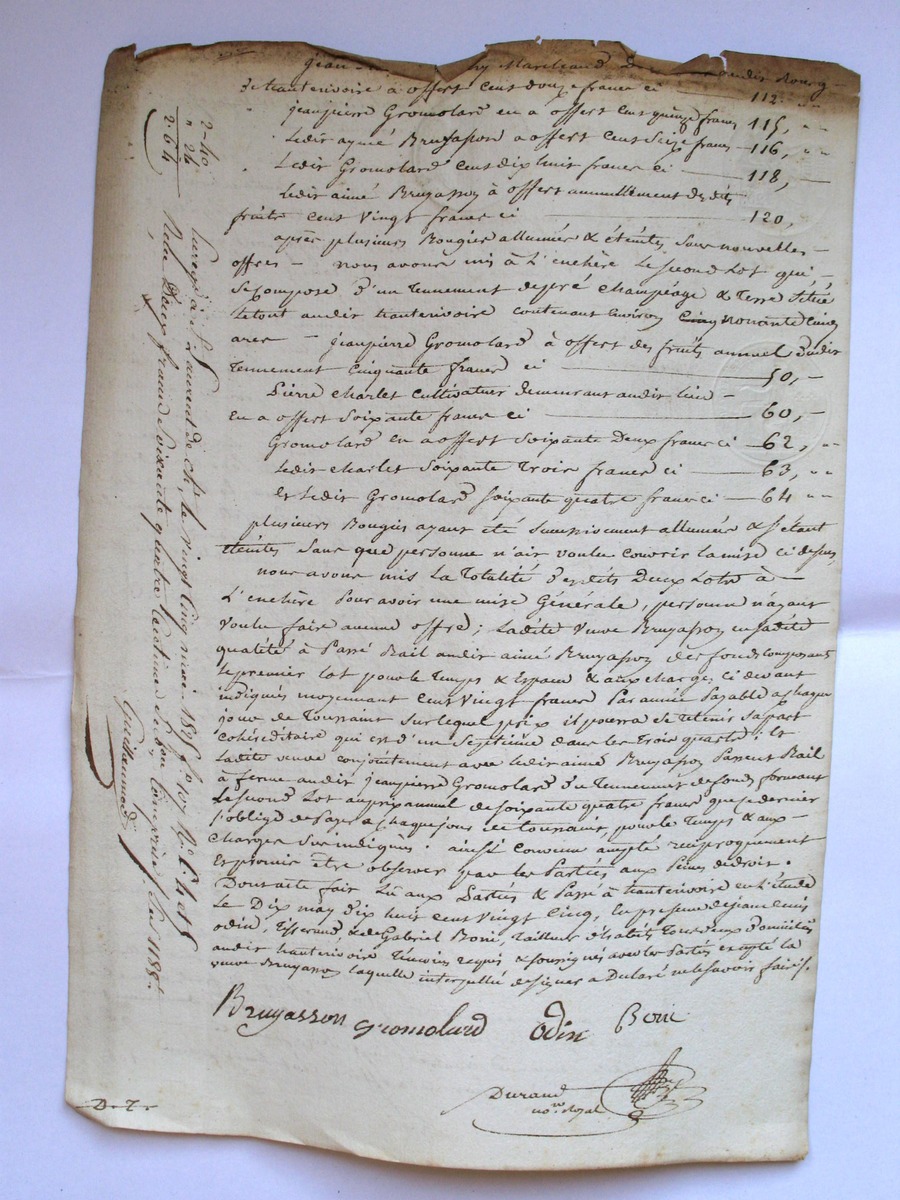 jean Marchand De audit Bourg
D'hauterivoire à offert Cent douze francs ci 112. " "
jeanpierre Gromolard en a offert Cent quinze francs 115, " "
Ledit aymé Bruyasson a offert Cent Seize francs 116, " "
Ledit Gromolard Cent dix huit francs ci 118, -
Ledit aimé Bruyasson à offert annuellement desdits
fruits Cent Vingt francs ci 120,
après plusieurs Bougies allumées & éteintes Sans nouvelles
offres - nous avons mis à L'enchère Le second Lot qui
Se Compose D'un Tennement de pré Champéage & Terre Situé
Le tout audit hauterivoire Contenant Environ Cinq nonante Cinq
ares - jeanpierre Gromolard à offert des fruits annuel Dudit
Tennement Cinquante francs ci 50, -
Pierre Charlet Cultivateur demeurant audit Lieu
en a offert Soixante francs ci 60, -
Gromolard en a offert Soixante Deux francs ci 62, " "
Ledit Charlet Soixante Trois francs ci 63, " "
Et Ledit Gromolard Soixante quatre francs ci 64 " "
plusieurs Bougies ayant été Successivement allumées & S'étant
éteintes Sans que personne n'ait voulu Couvrir La mise Ci dessus,
nous avons mis La Totalité Desdits Deux Lots à
L'enchère Pour avoir une mise Générale, personne n'ayant
Voulu faire aucune offre; Ladite Veuve Bruyasson en Sadite
qualité à Passé Bail audit aimé Bruyasson des fonds Composant
Le premier Lot pour le Temps & Espace & aux Charges Ci devant
indiqués moyennant Cent Vingt francs Par année Payable a Chaque
jour de Toussaint Sur lequel prix il pourra Se Retenir Sa part
Cohéréditaire qui est d'un Septième dans les Trois quarts; Et
Ladite veuve Conjointement avec Ledit aimé Bruyasson Passent Bail
à ferme audit jeanpierre Gromolard Du Tennement de fonds formant
Le Second Lot au prix annuel de Soixante quatre francs que Ce dernier
S'oblige de Payer a Chaque jour de Toussaint, pour le Temps & aux
Charges Sus indiqués: ainsi Convenu accepté réciproquement
Et promis être observé par les Parties aux Peines de droit.
Dont acte fait Lu aux Parties & Passé à hauterivoire en L'étude
Le Dix may Dix huit Cent Vingt Cinq, En presence de jean Louis
odin, Tisserand, & de Gabriel Boni, tailleur d'habits Tous deux Domiciliés
audit hauterivoire Témoins requis & Soussignés avec les Parties excepté la
veuve Bruyasson Laquelle interpellée de signer a Declaré ne le Savoir faire.
Bruyasson Gromolard Odin Boni
Durand
no.re Royal
D. T.
2-40
" 24
2 64
Enregé à St Laurent de Ch. le Vingt Cinq mai 1825 fo 107
Reçu Deux francs Soixante quatre Centimes Dixième Compris
Guillaumod